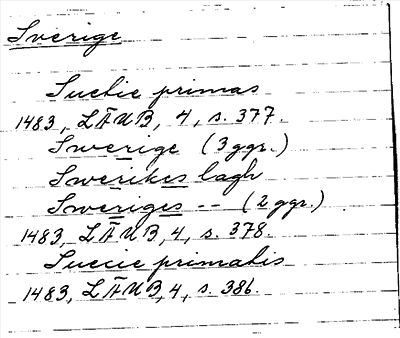 Sverige
Suecie primas
1483, LÄUB, 4, s. 377.
Swerige (3 ggr.)
Swerikes lagh
Sweriges -- (2 ggr.)
1483, LÄUB, 4, s. 378.
Suecie primatis
1483, LÄUB, 4, s. 386.